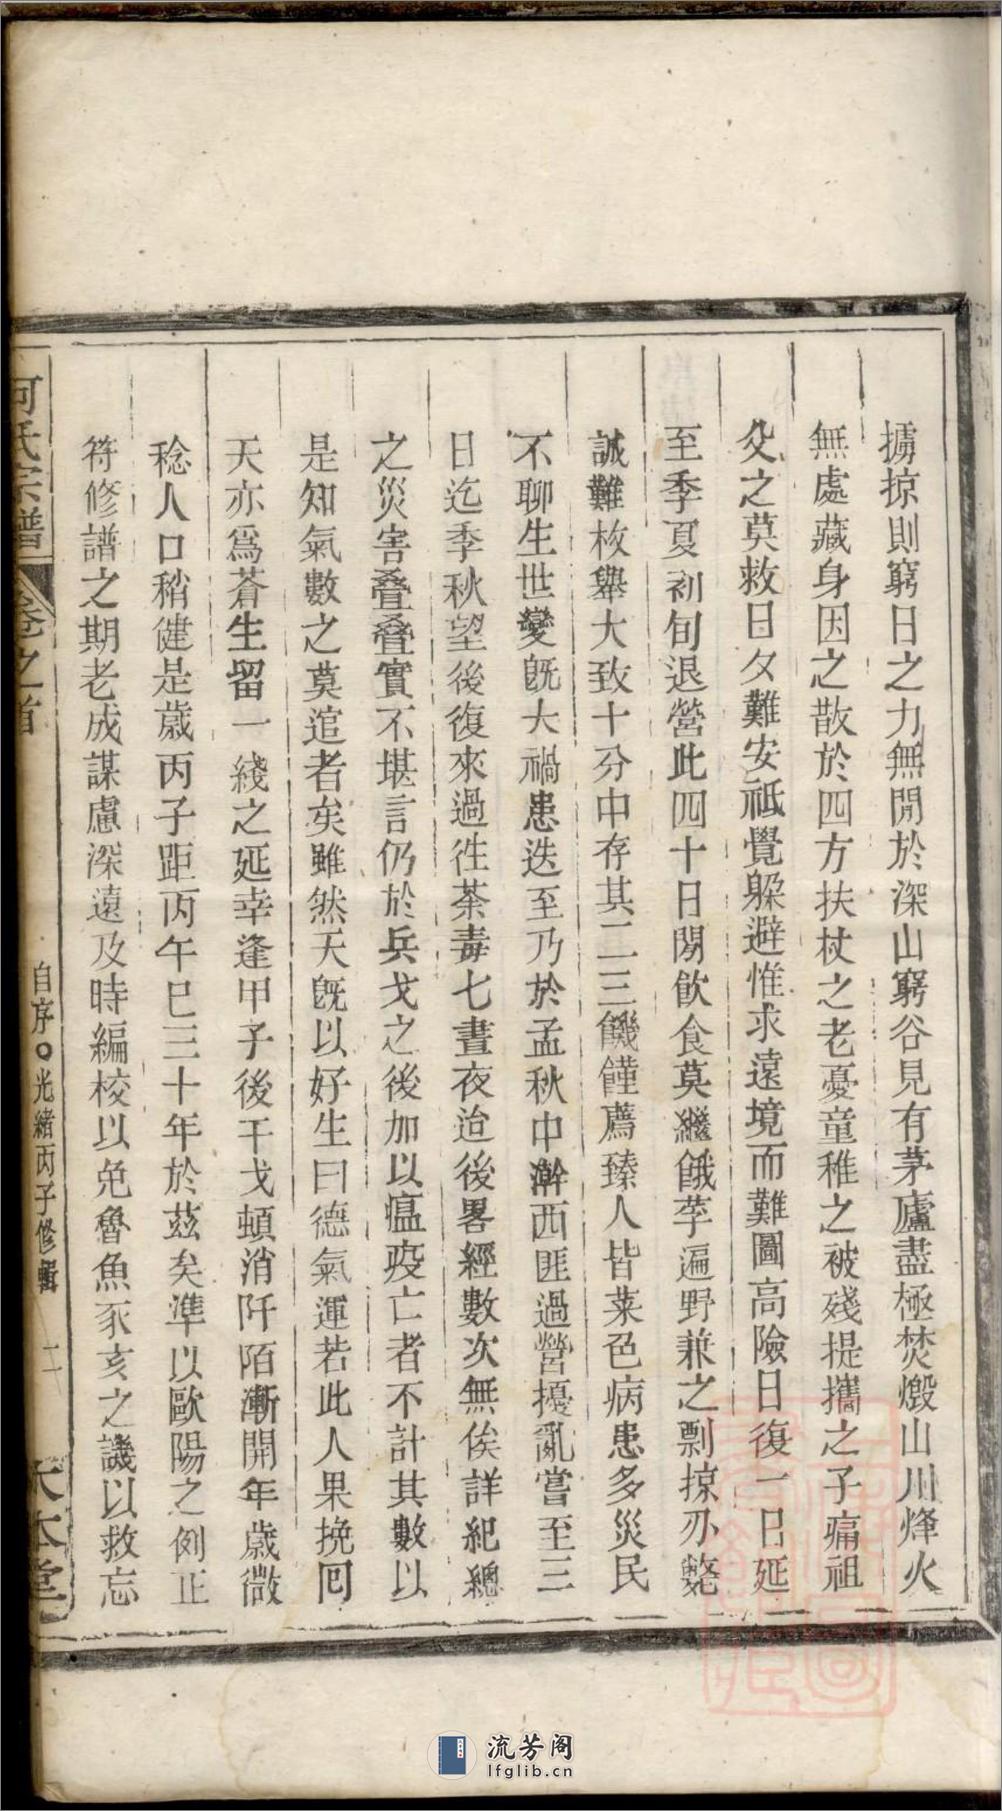 擄掠則窮日之力無閒於深山窮谷見有茅廬盡極焚燬山川烽火
無處藏身因之散於四方扶杖之老憂童稚之被殘提攜之子痛祖
父之莫救日夕難安祗覺躲避惟求遠境而難圖高險日復一日延
至季夏初旬退營此四十日閒飲食莫繼餓莩遍野兼之剽掠刃斃
誠難枚舉大致十分中存其二三饑饉薦臻人皆菜色病患多災民
不聊生世變旣大禍患迭至乃於孟秋中澣西匪過營擾亂嘗至三
日迄季秋望後復來過徃荼毒七晝夜迨後畧經數次無俟詳紀總
之災害叠叠實不堪言仍於兵戈之後加以瘟疫亡者不計其數以
是知氣數之莫逭者矣雖然天旣以好生曰德氣運若此人果挽囘
天亦爲蒼生留一綫之延幸逢甲子後干戈頓消阡陌漸開年歲微
稔人口稍健是歲丙子距丙午巳三十年於茲矣準以歐陽之例正
符修譜之期老成謀慮深遠及時編校以免魯魚豕亥之譏以救忘
何氏宗譜 卷之首 自序○光緒丙子修輯 二 天本堂
流芳阁
lfglib.cn